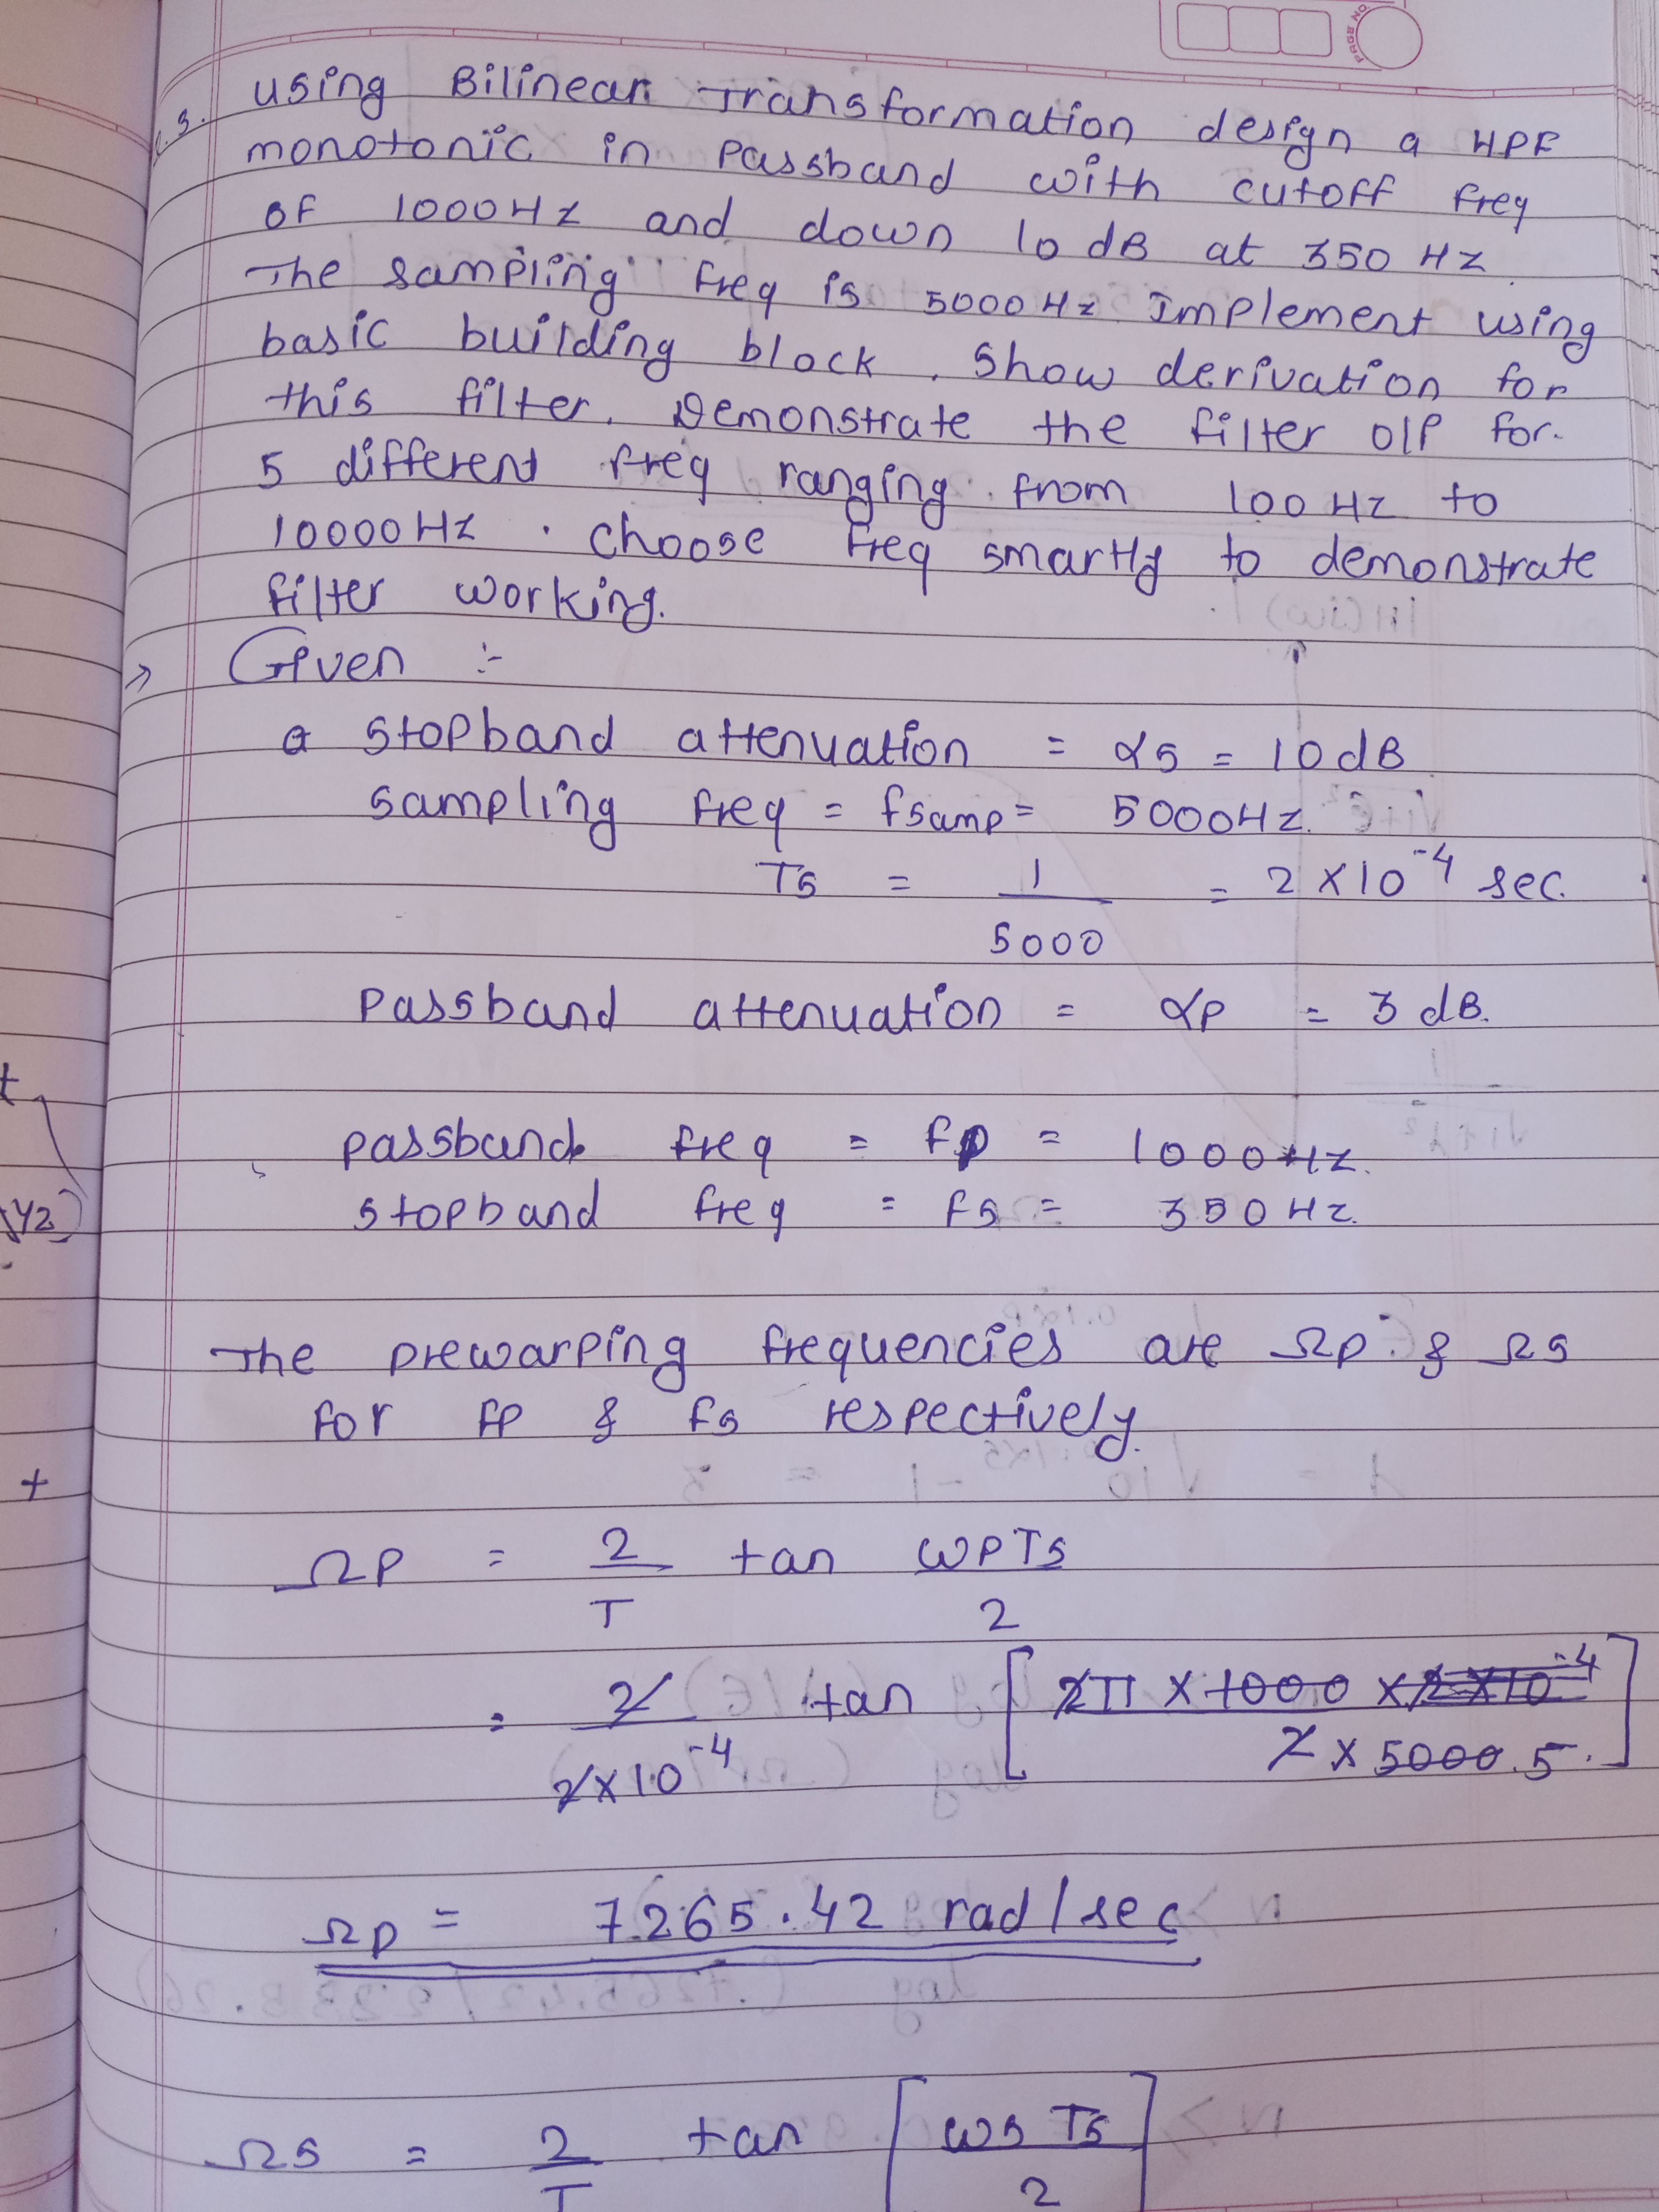 PAGE NO.
using Bilinear Transformation design a HPF
monotonic in Passband with cutoff freq
of 1000Hz and down 10 dB at 350 Hz
The sampling freq is 5000Hz Implement using
basic building block. Show derivation for
this filter. Demonstrate the filter O/P for
5 different freq ranging from 100 Hz to
10000Hz. choose freq smartly to demonstrate
filter working.
Given :-
stopband attenuation = αs = 10 dB
sampling freq = fsamp = 5000Hz.
Ts = 1/5000 = 2 × 10^-4 sec.
passband attenuation = αp = 3 dB.
passband freq = fp = 1000Hz.
stopband freq = fs = 350 Hz.
The prewarping frequencies are Ωp & Ωs
for fp & fs respectively.
Ωp = 2/T tan ωpTs/2
= 2/2×10^-4 tan [2π × 1000 / 2 × 5000 5.]
Ωp = 7265.42 rad/sec
Ωs = 2/T tan [ωs Ts/2]